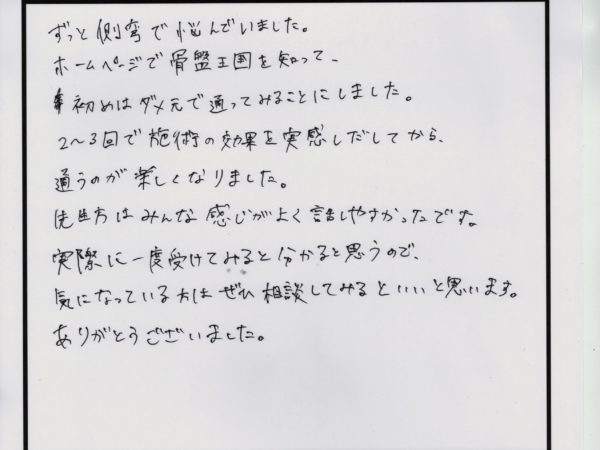 ずっと側弯で悩んでいました。
ホームページで骨盤王国を知って、
初めはダメ元で通ってみることにしました。
2〜3回で施術の効果を実感しだしてから、
通うのが楽しくなりました。
先生方はみんな感じがよく話しやすかったです。
実際に一度受けてみると分かると思うので、
気になっている方はぜひ相談してみるといいと思います。
ありがとうございました。